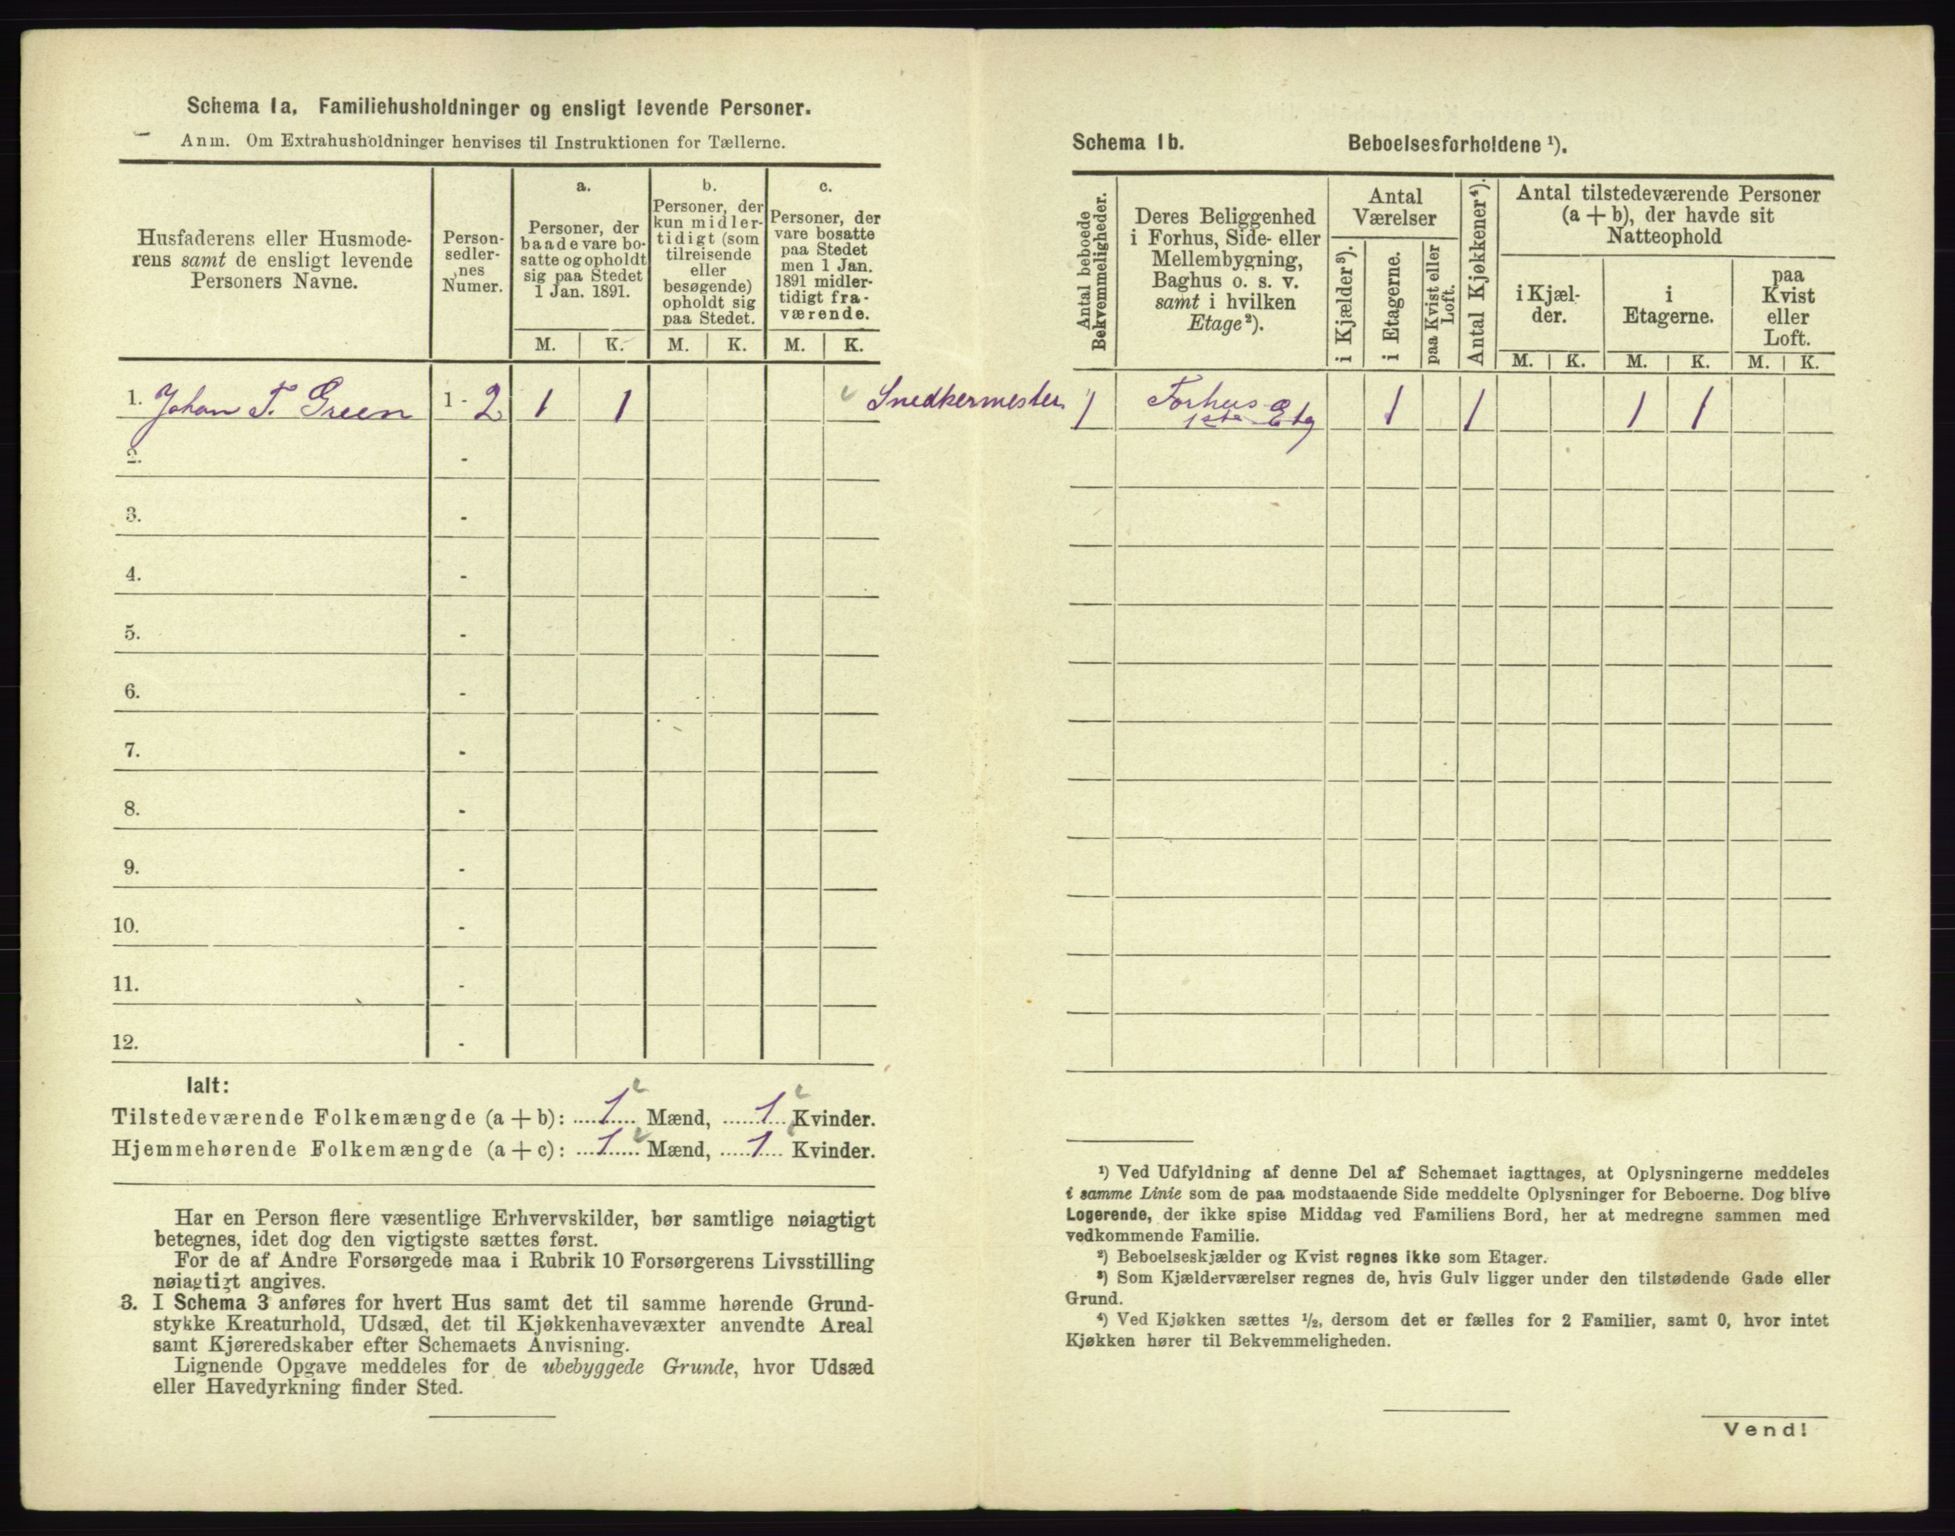 Schema 1a. Familiehusholdninger og ensligt levende Personer.
Anm. Om Extrahusholdninger henvises til Instruktionen for Tællerne.
Husfaderens eller Husmode-
rens samt de ensligt levende
Personers Navne.
Person-
sedler-
nes
Numer.
a.
Personer, der
baade vare bo-
satte og opholdt
sig paa Stedet
1 Jan. 1891.
b.
Personer, der
kun midler-
tidigt (som
tilreisende
eller
besøgende)
opholdt sig
paa Stedet.
c.
Personer, der
vare bosatte
paa Stedet
men 1 Jan.
1891 midler-
tidigt fra-
værende.
M. K. M. K. M. K.
1. Johan T. Green 1 - 2 1 1 Snedkermester
2. -
3. -
4. -
5. -
6. -
7. -
8. -
9. -
10. -
11. -
12. -
Ialt:
Tilstedeværende Folkemængde (a + b): 1 Mænd, 1 Kvinder.
Hjemmehørende Folkemængde (a + c): 1 Mænd, 1 Kvinder.
Har en Person flere væsentlige Erhvervskilder, bør samtlige nøiagtigt
betegnes, idet dog den vigtigste sættes først.
For de af Andre Forsørgede maa i Rubrik 10 Forsørgerens Livsstilling
nøiagtigt angives.
3. I Schema 3 anføres for hvert Hus samt det til samme hørende Grund-
stykke Kreaturhold, Udsæd, det til Kjøkkenhavevæxter anvendte Areal
samt Kjøreredskaber efter Schemaets Anvisning.
Lignende Opgave meddeles for de ubebyggede Grunde, hvor Udsæd
eller Havedyrkning finder Sted.
Schema 1b. Beboelsesforholdene ¹).
Antal beboede
Bekvemmeligheder.
Deres Beliggenhed
i Forhus, Side- eller
Mellembygning,
Baghus o. s. v.
samt i hvilken
Etage ²).
Antal
Værelser
i Kjælder ³).
i Etagerne.
paa Kvist eller
Loft.
Antal Kjøkkener ⁴).
Antal tilstedeværende Personer
(a + b), der havde sit
Natteophold
i Kjæl-
der.
i
Etagerne.
paa
Kvist
eller
Loft.
M. K. M. K. M. K.
1 Forhus 1 1 1 1
1ste Etg
¹) Ved Udfyldning af denne Del af Schemaet iagttages, at Oplysningerne meddeles
i samme Linie som de paa modstaaende Side meddelte Oplysninger for Beboerne. Dog blive
Logerende, der ikke spise Middag ved Familiens Bord, her at medregne sammen med
vedkommende Familie.
²) Beboelseskjælder og Kvist regnes ikke som Etager.
³) Som Kjælderværelser regnes de, hvis Gulv ligger under den tilstødende Gade eller
Grund.
⁴) Ved Kjøkken sættes ½, dersom det er fælles for 2 Familier, samt 0, hvor intet
Kjøkken hører til Bekvemmeligheden.
Vend!